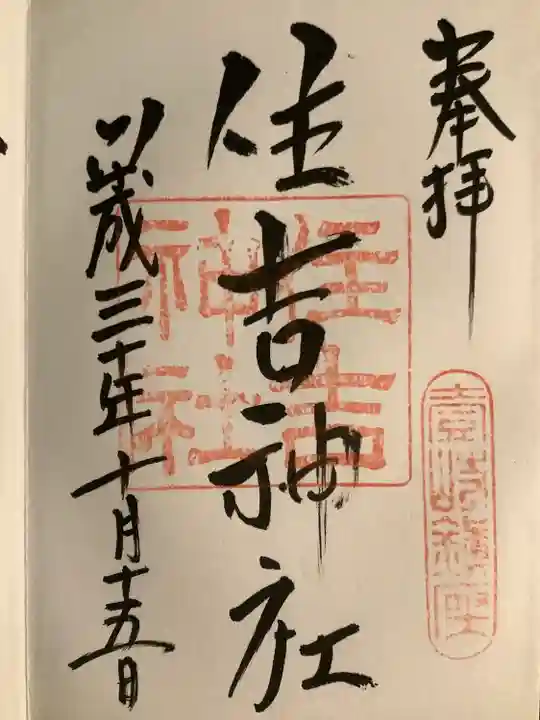 奉拝
壹岐鎮座
住吉神社
住吉神社
平成三十年十月十五日